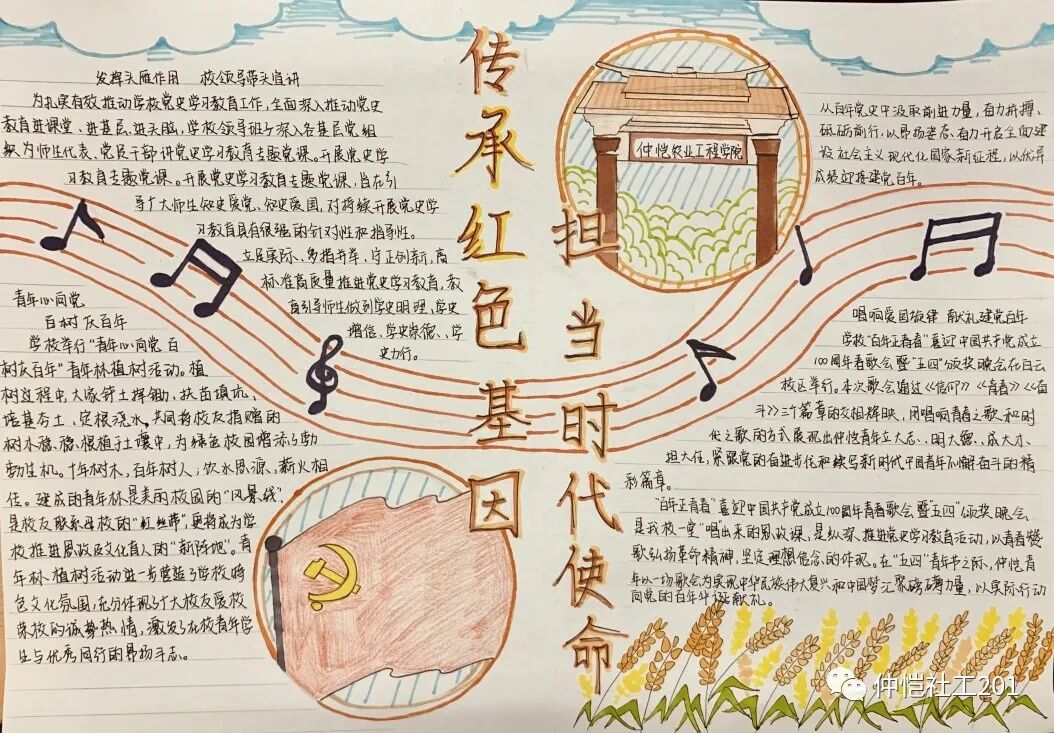 传承红色基因
担当时代使命
仲恺农业工程学院
发挥头雁作用 校领导带头宣讲
为扎实有效推动学校党史学习教育工作,全面深入推动党史
教育进课堂、进基层、进头脑,学校领导班子深入各基层党组
织为师生代表、党员干部讲党史学习教育专题党课。开展党史学
习教育专题党课。开展党史学习教育专题党课,旨在引
导广大师生知史爱党、知史爱国,对持续开展党史学
习教育具有很强的针对性和指导性。
立足实际、多措并举、守正创新,高
标准高质量推进党史学习教育,教
育引导师生做到学史明理、学史
增信、学史崇德、学
史力行。
青年心向党
百树庆百年
学校举行“青年心向党 百
树庆百年”青年林植树活动。植
树过程中,大家铲土挥锄、扶苗填坑、
培基夯土、定根浇水,共同将校友捐赠的
树木稳稳根植于土壤中,为绿色校园增添了勃
勃生机。十年树木,百年树人,饮水思源,薪火相
传。建成的青年林是美的校园的“风景线”,
是校友联系母校的“红丝带”,更将成为学
校推进思政及文化育人的“新阵地”。青
年林植树活动进一步营造了学校特
色文化氛围,充分体现了广大校友爱校
荣校的诚挚热情,激发了在校青年学
生与优秀同行的昂扬斗志。
从百年党史中汲取前进力量,奋力拼搏、
砥砺前行,以昂扬姿态奋力开启全面建
设社会主义现代化国家新征程,以优异
成绩迎接建党百年。
唱响爱国旋律 献礼建党百年
学校“百年正青春”喜迎中国共产党成立
100周年春歌会暨“五四”颁奖晚会在白云
校区举行。本次歌会通过《信仰》《青春》《奋
斗》三个篇章的交相辉映,用唱响青春之歌和时
代之歌的方式展现出仲恺青年立大志、明大德、成大才、
担大任,紧跟党的奋进步伐和续写新时代中国青年不懈奋斗的精
彩篇章。
“百年正青春”喜迎中国共产党成立100周年青春歌会暨“五四”颁奖晚会,
是我校一堂“唱”出来的思政课,是纵深推进党史学习教育活动,以青春赞
歌弘扬革命精神,坚定理想信念的体现。在“五四”青年节之际,仲恺青
年以一场歌会为实现中华民族伟大复兴和中国梦汇聚磅礴力量,以实际行动
向党的百年华诞献礼。
仲恺社工201